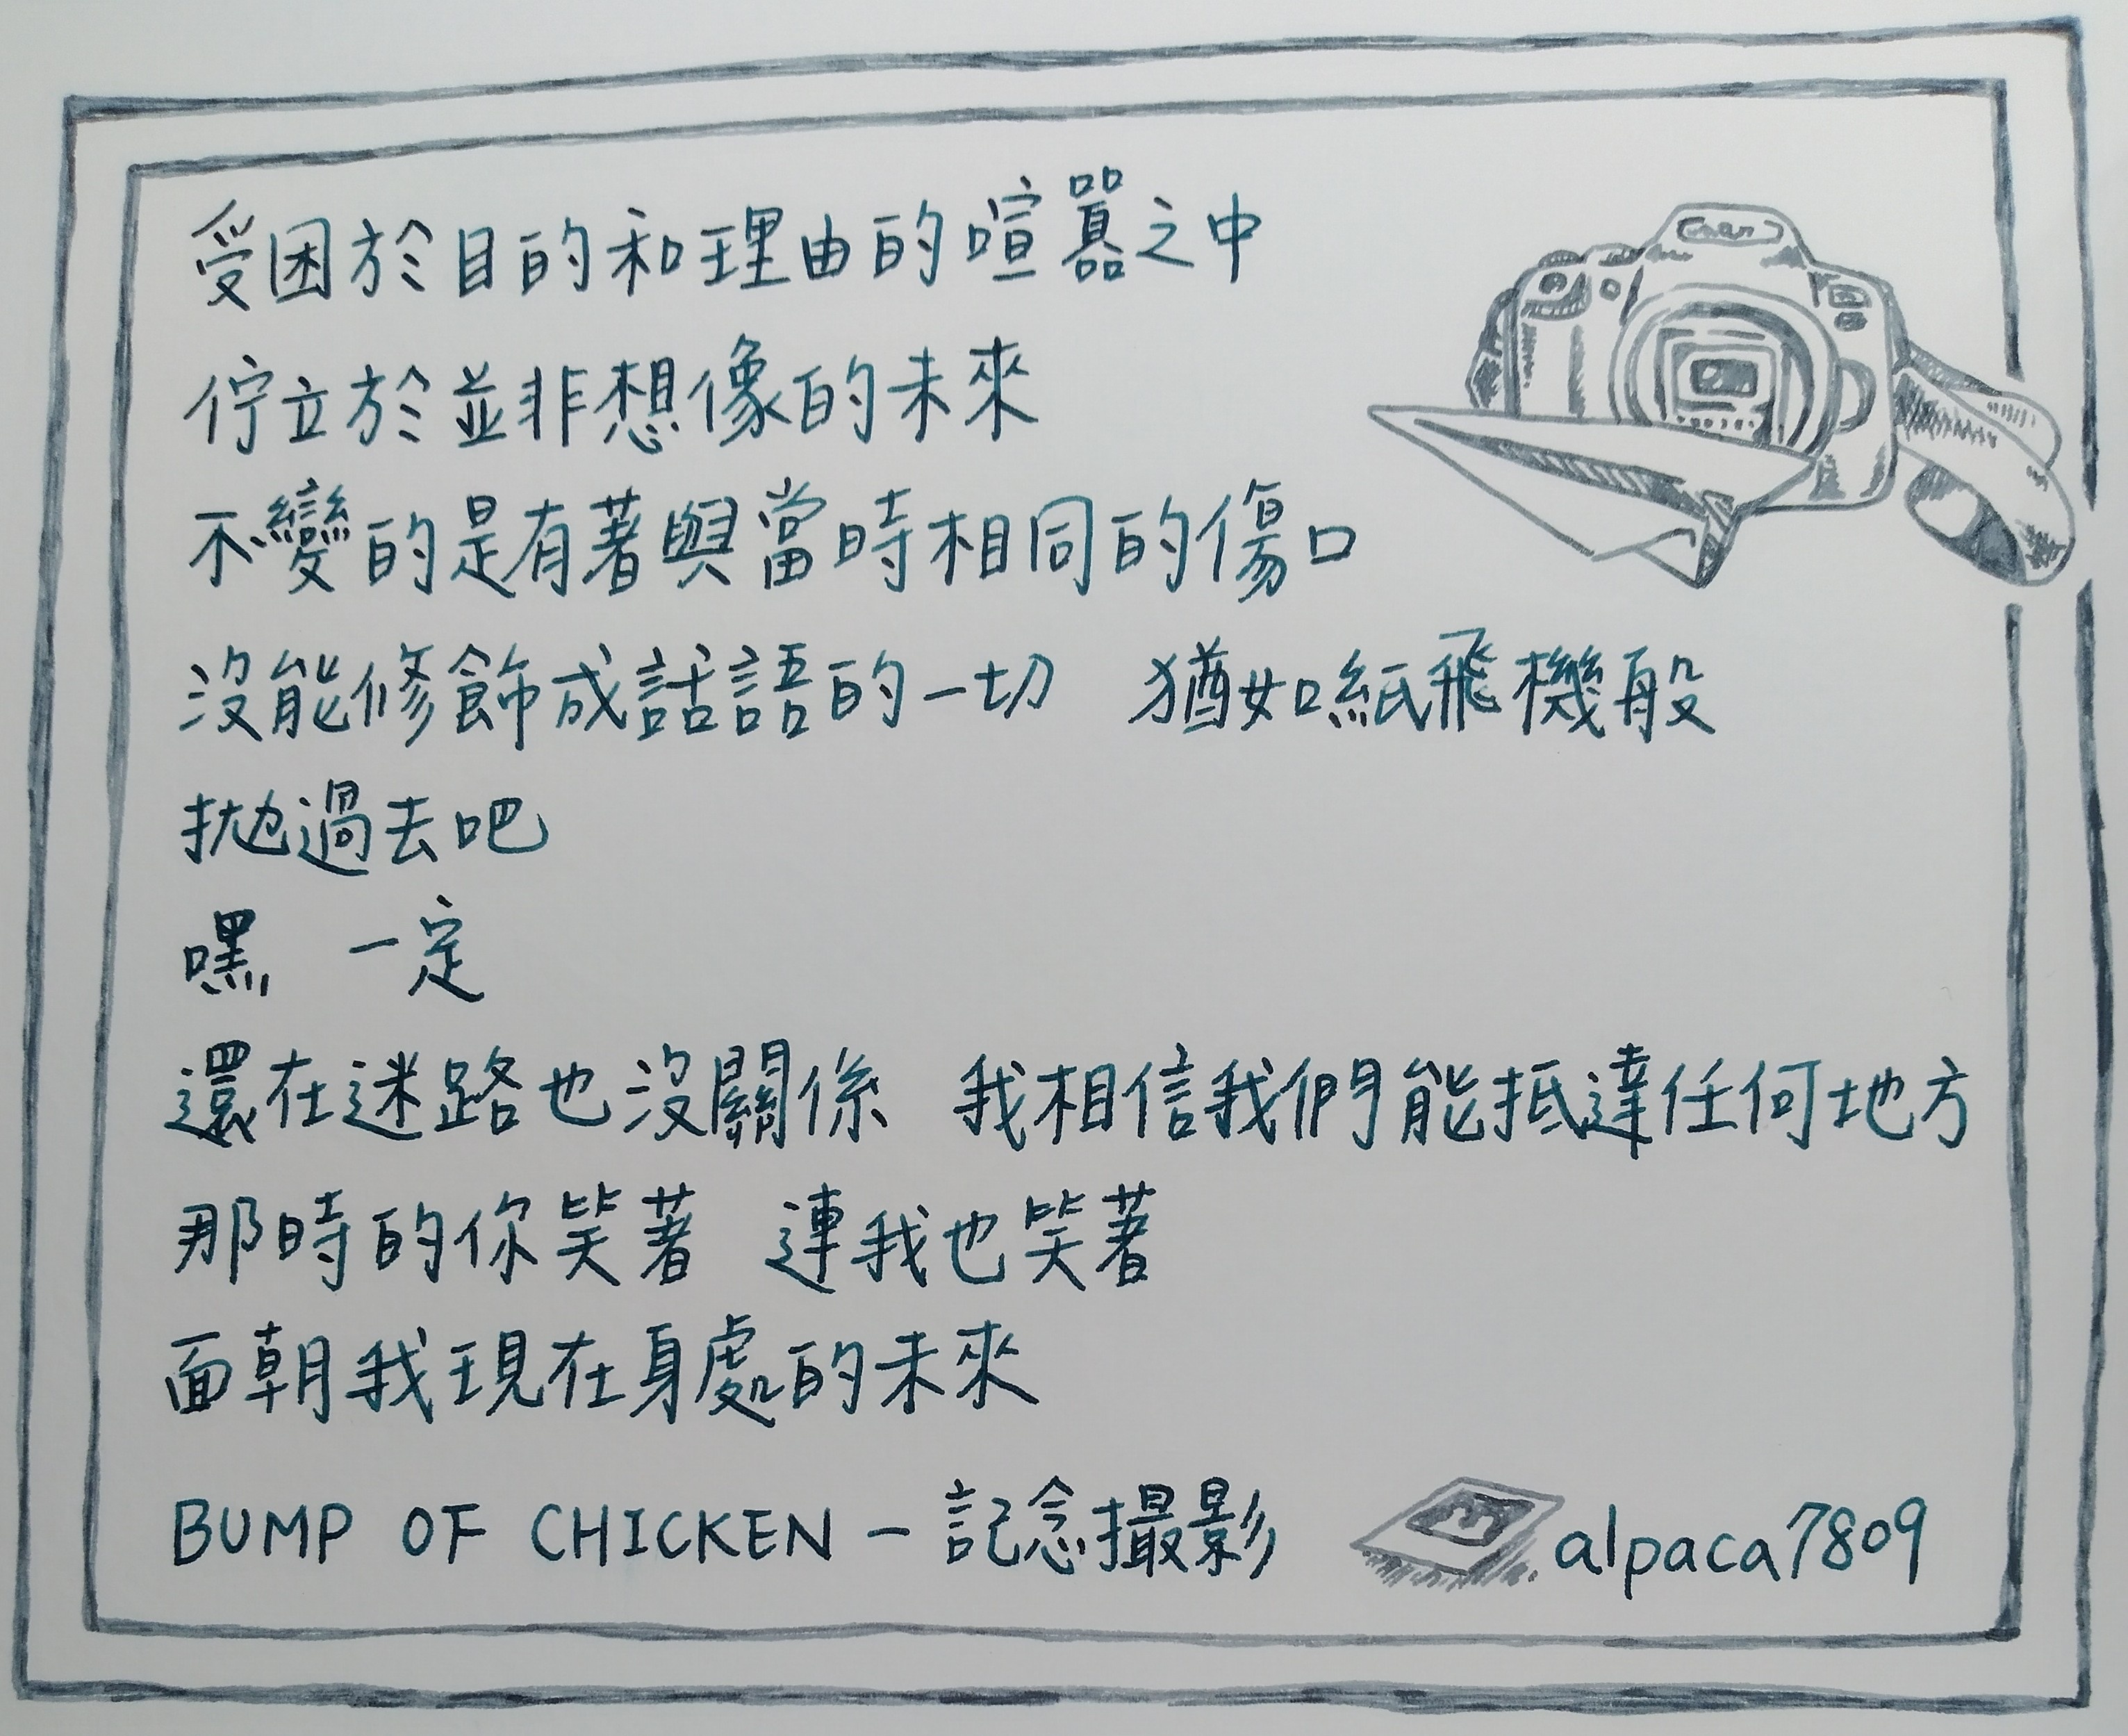 受困於目的和理由的喧囂之中
佇立於並非想像的未來
不變的是有著與當時相同的傷口
沒能修飾成話語的一切　猶如紙飛機般
拋過去吧
嘿　一定
還在迷路也沒關係　我相信我們能抵達任何地方
那時的你笑著　連我也笑著
面朝我現在身處的未來
BUMP OF CHICKEN - 記念撮影
alpaca7809